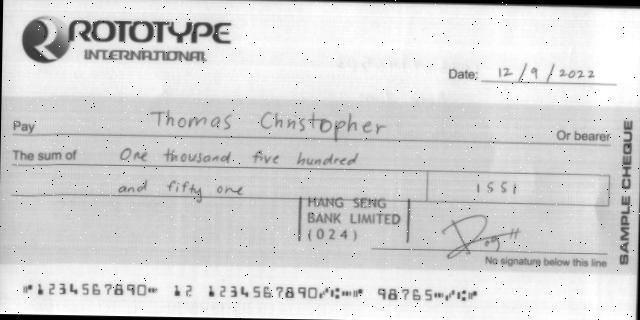 ROTOTYPE
INTERNATIONAL
Date: 12/9/2022
Pay Thomas Christopher Or bearer
The sum of One thousand five hundred
and fifty one 1551
HANG SENG
BANK LIMITED
(024)
No signature below this line
SAMPLE CHEQUE
1234567890 12 1234567890 98765